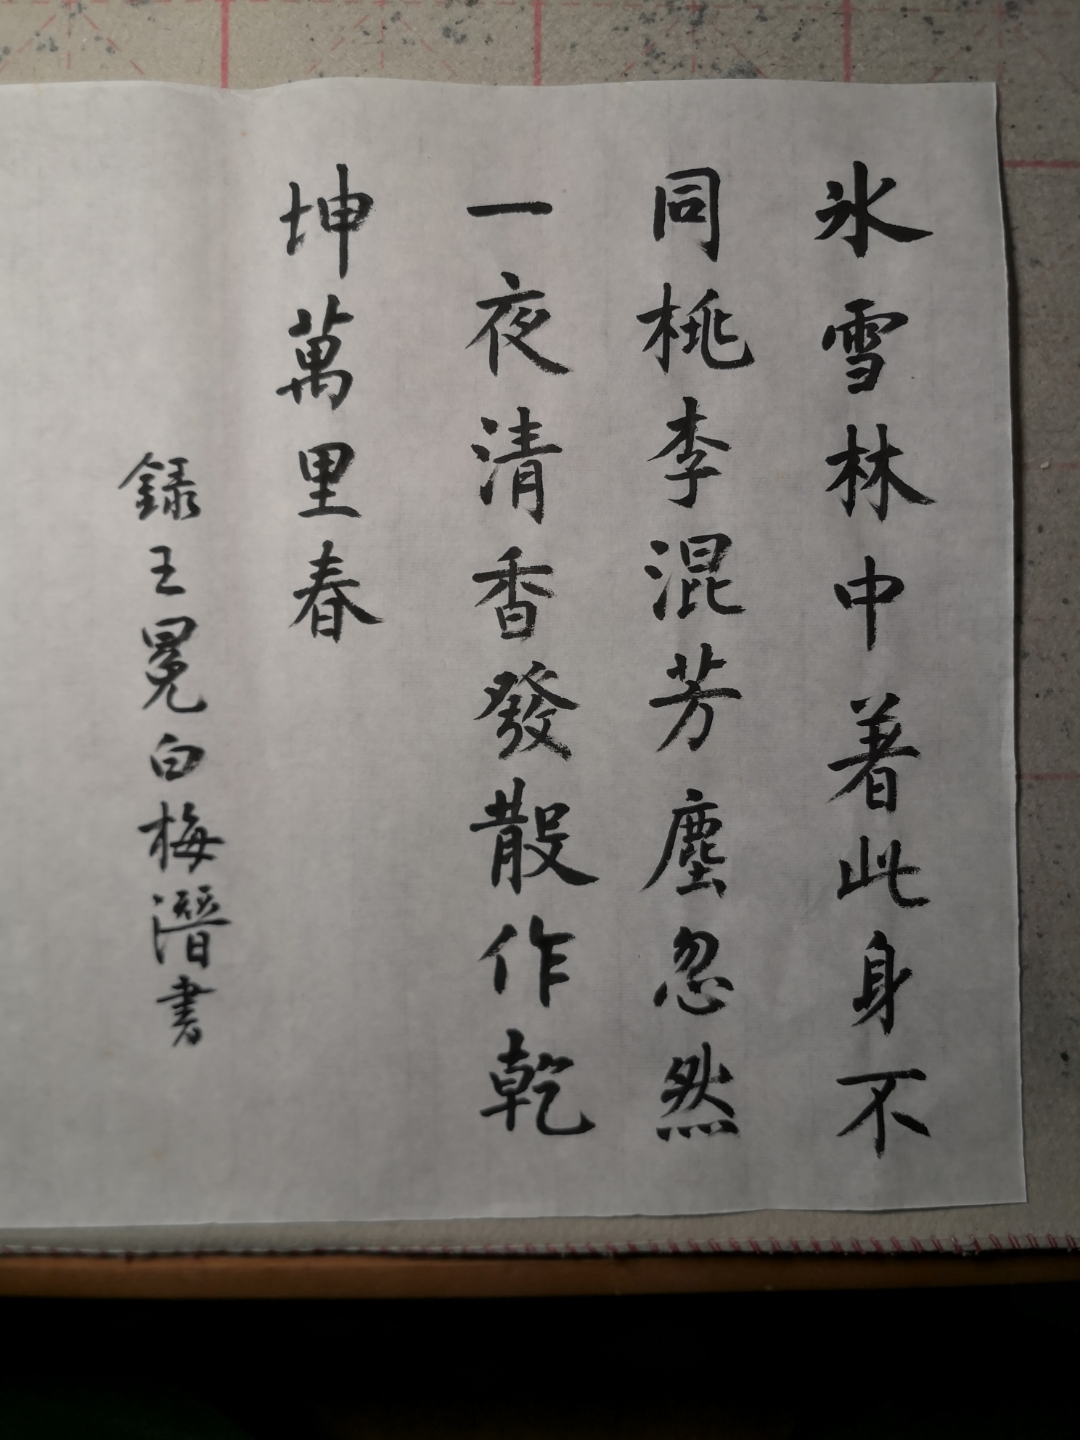 氷雪林中著此身不
同桃李混芳塵忽然
一夜清香發散作乾
坤萬里春
録王冕白梅潛書